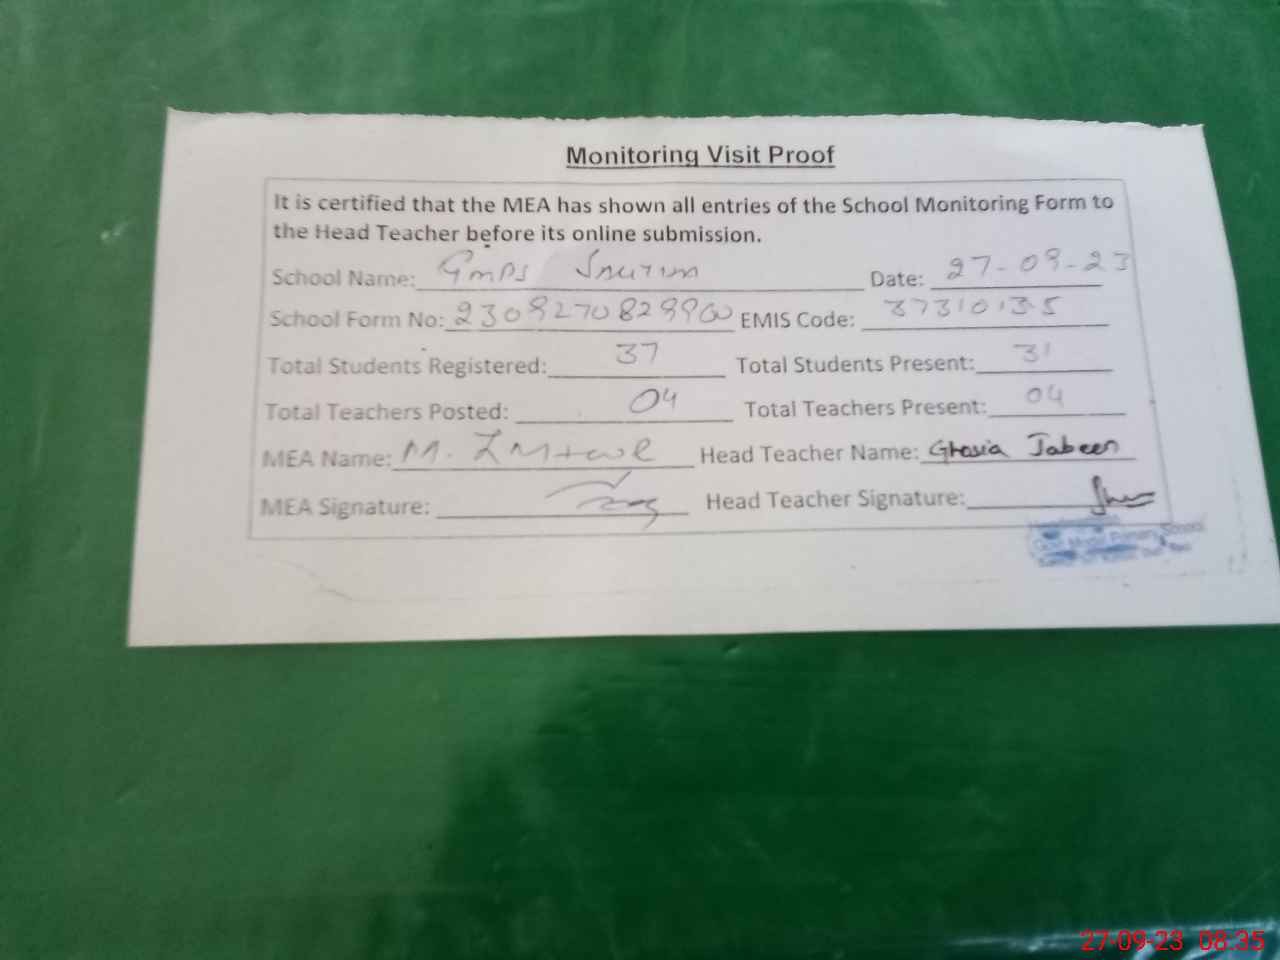 Monitoring Visit Proof
It is certified that the MEA has shown all entries of the School Monitoring Form to
the Head Teacher before its online submission.
School Name: Gmps Date: 27-09-23
School Form No: EMIS Code: 37310135
Total Students Registered: 37 Total Students Present: 31
Total Teachers Posted: 04 Total Teachers Present: 04
MEA Name: M. Head Teacher Name: Ghasia Jabeen
MEA Signature: Head Teacher Signature:
Govt. Model Primary School
27-09-23 08:35